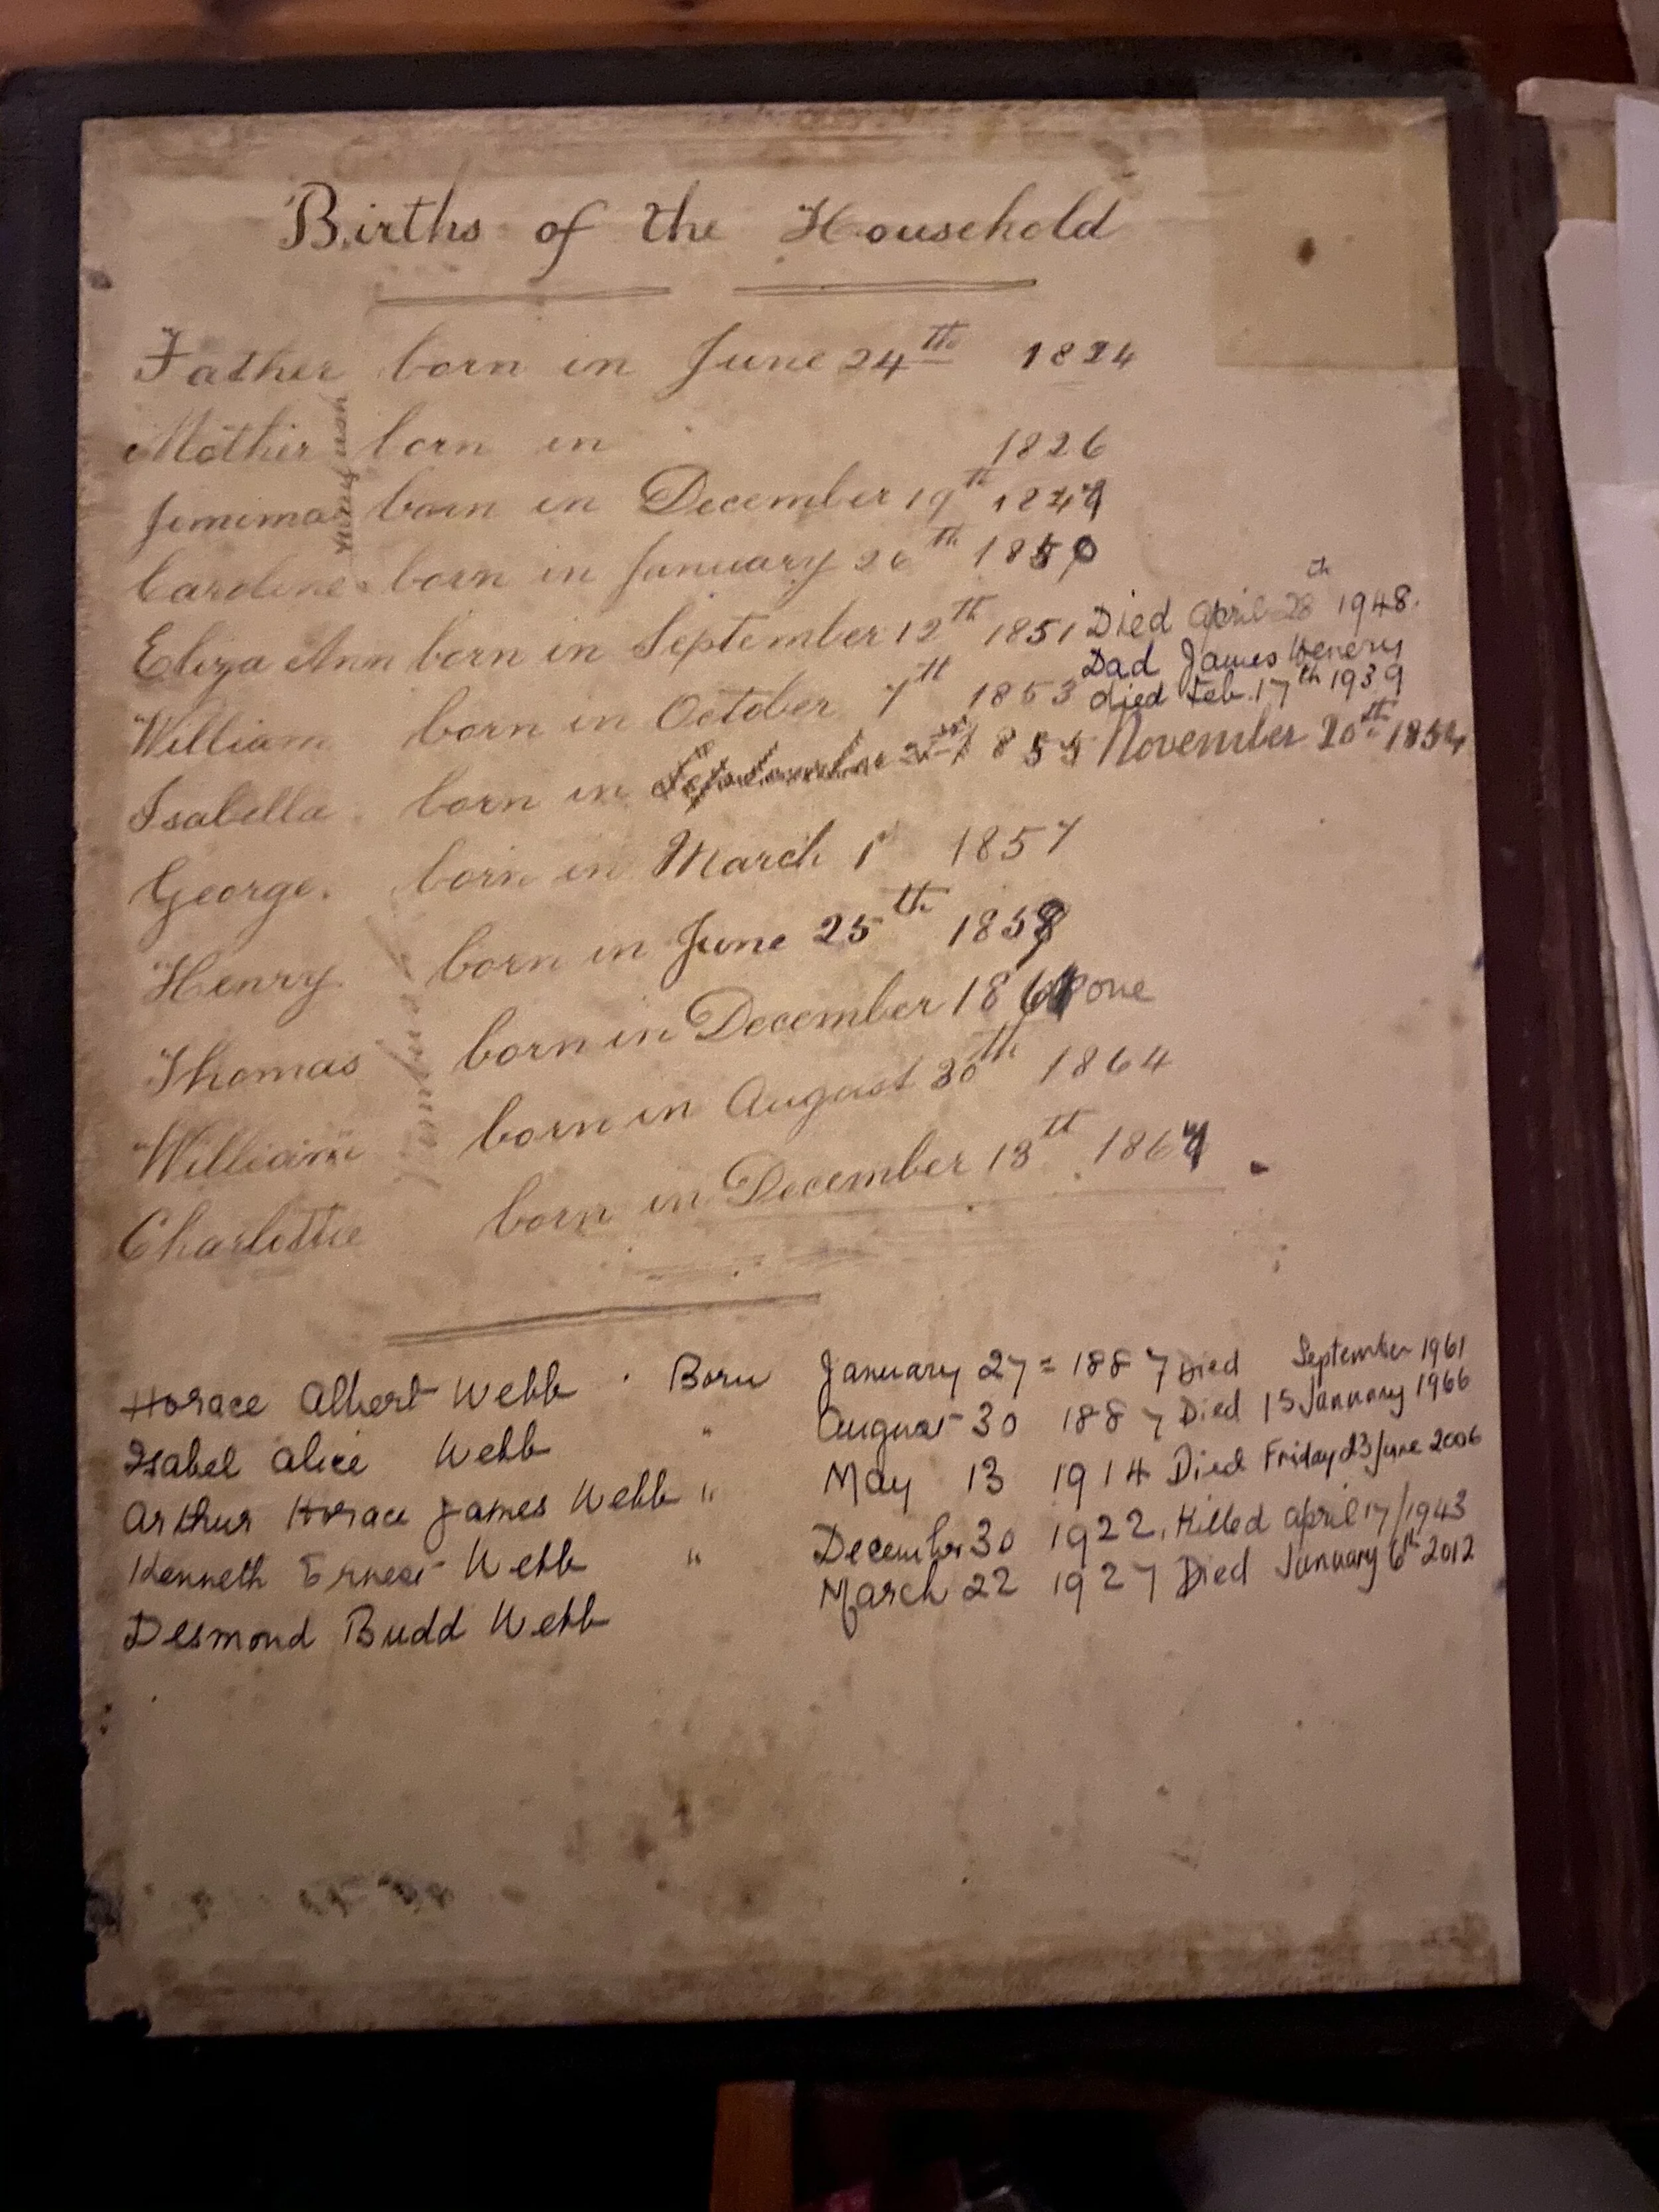 Births of the Household
Father born in June 24th 1824
Mother born in 1826
Jemima born in December 19th
Caroline born in January 26th 1850
Eliza Ann born in September 12th 1851 Died April 28th 1948.
Dad James Henery
William born in October 7th 1853 died Feb. 17th 1939
Isabella born in 1855 November 20th 1854
George. born in March 1st 1857
Henry. born in June 25th
Thomas born in December one
William born in August 30th 1864
Charlottie born in December 13th 1867
Horace Albert Webb. Born January 27 = 1887 Died September 1961
Isabel Alice Webb " August 30 1887 Died 15 January 1966
Arthur Horace James Webb " May 13 1914 Died Friday 23 June 2006
Kenneth Ernest Webb " December 30 1922. Killed April 17/1943
Desmond Budd Webb March 22 1927 Died January 6th 2012